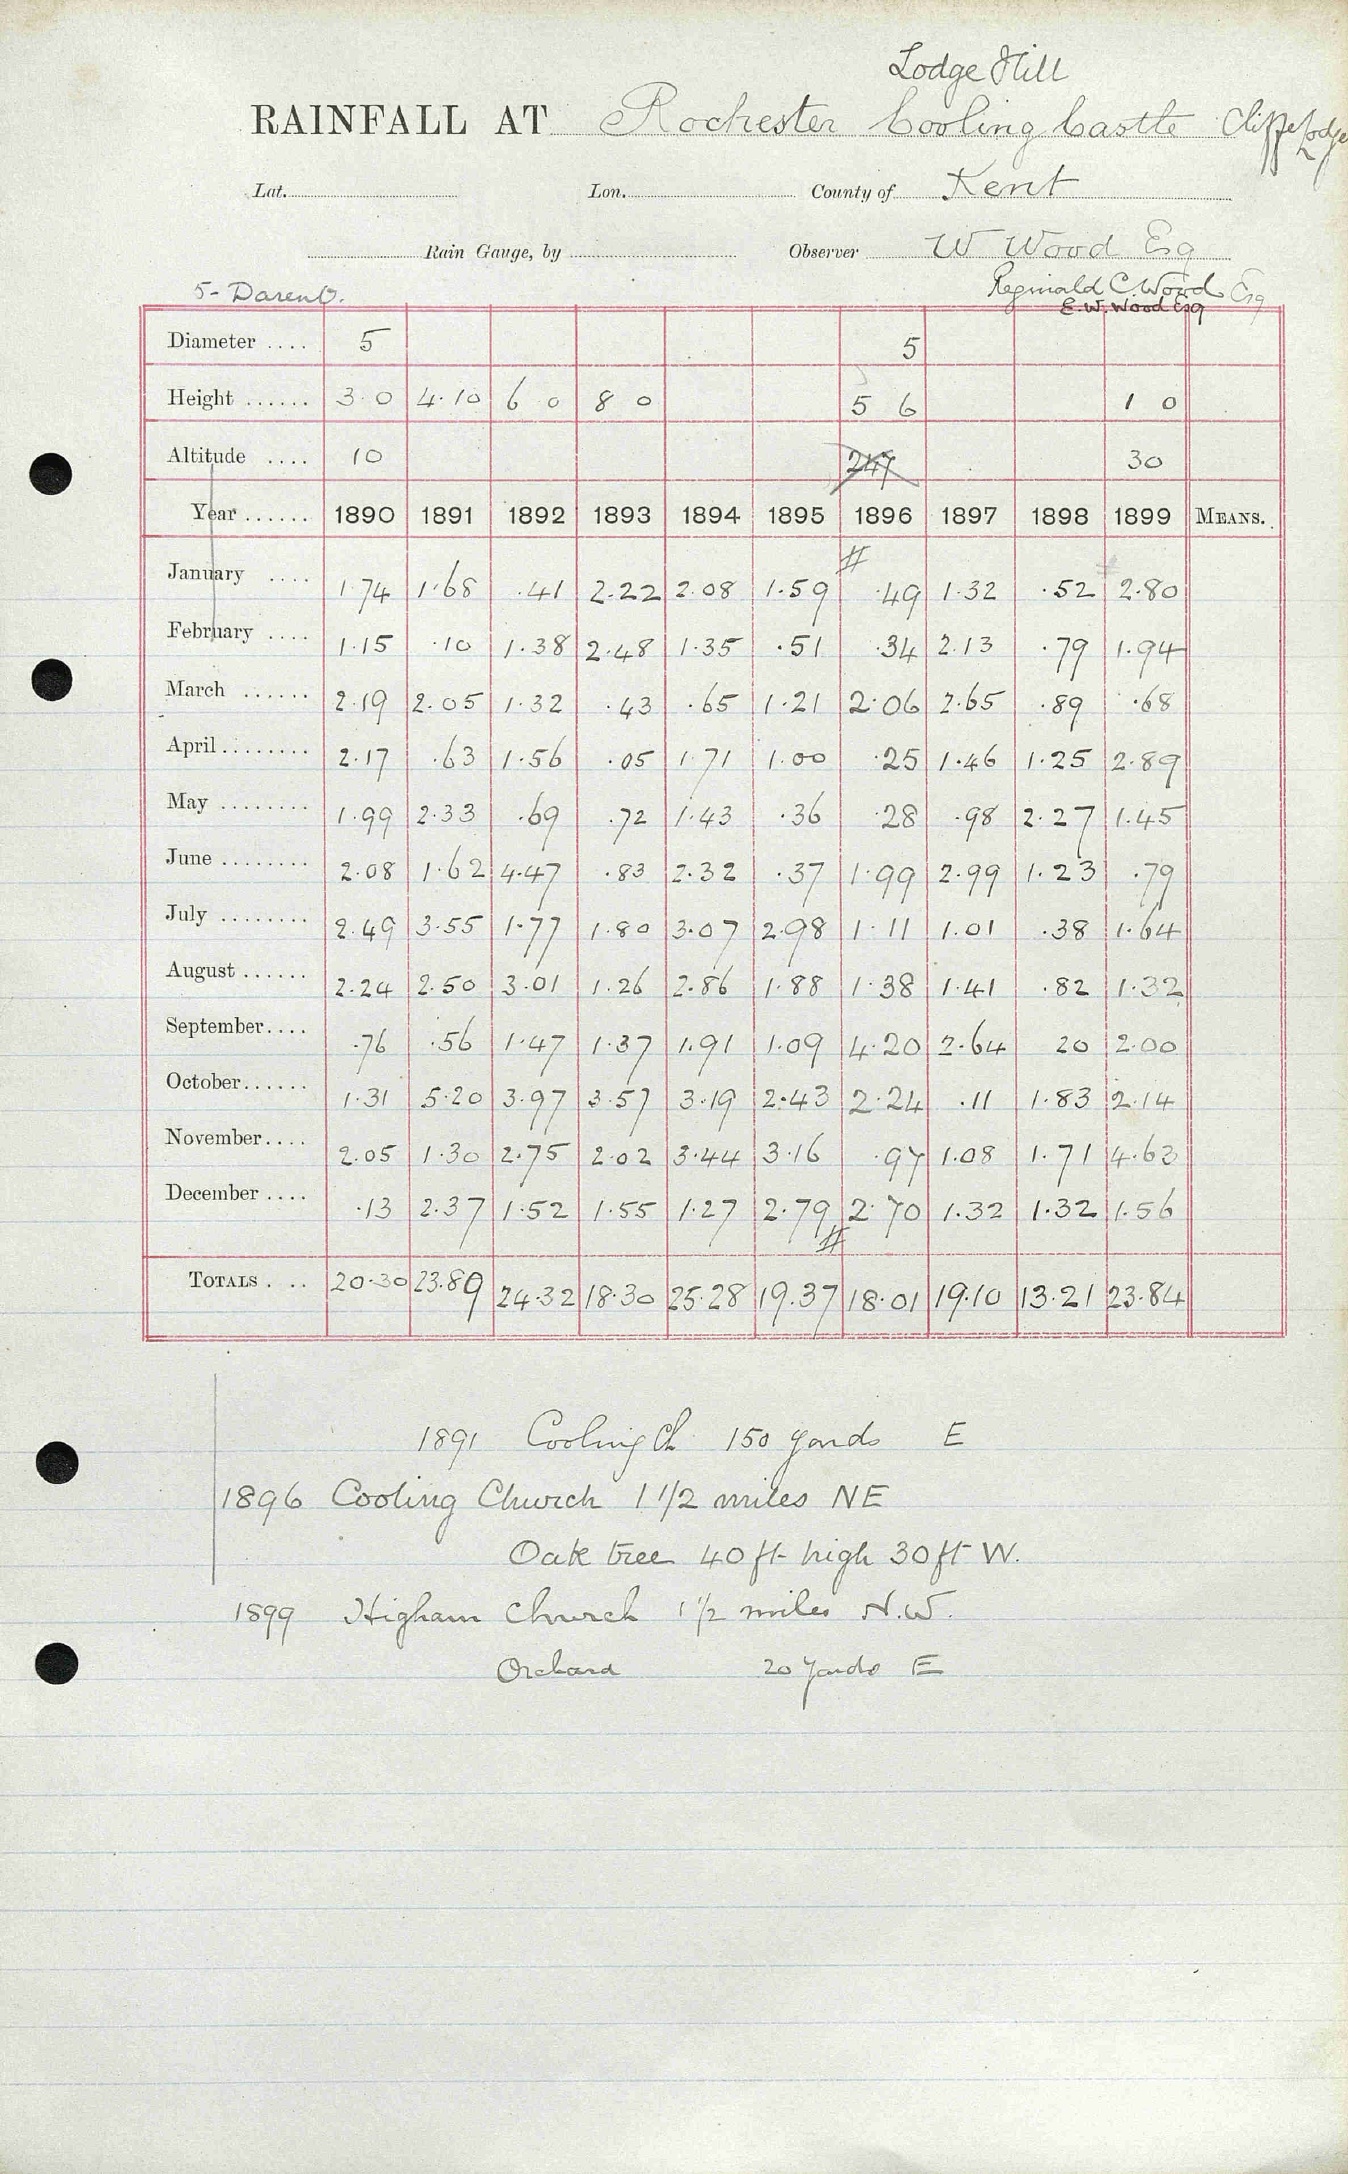 Lodge Hill
RAINFALL AT Rochester Cooling Castle Cliffe Lodge
Lat. Lon. County of Kent
Rain Gauge, by Observer W Wood Esq
5- Darent. Reginald C. Wood Esq
E. W. Wood Esq
Diameter .... 5 5
Height ...... 3 0 4.10 6 0 8 0 5 6 1 0
Altitude .... 10 247 30
Year ...... 1890 1891 1892 1893 1894 1895 1896 1897 1898 1899 MEANS.
#
January .... 1.74 1.68 .41 2.22 2.08 1.59 .49 1.32 .52 2.80
February .... 1.15 .10 1.38 2.48 1.35 .51 .34 2.13 .79 1.94
March ...... 2.19 2.05 1.32 .43 .65 1.21 2.06 2.65 .89 .68
April ........ 2.17 .63 1.56 .05 1.71 1.00 .25 1.46 1.25 2.89
May ........ 1.99 2.33 .69 .72 1.43 .36 .28 .98 2.27 1.45
June ........ 2.08 1.62 4.47 .83 2.32 .37 1.99 2.99 1.23 .79
July ........ 2.49 3.55 1.77 1.80 3.07 2.98 1.11 1.01 .38 1.64
August ...... 2.24 2.50 3.01 1.26 2.86 1.88 1.38 1.41 .82 1.32
September.... .76 .56 1.47 1.37 1.91 1.09 4.20 2.64 20 2.00
October...... 1.31 5.20 3.97 3.57 3.19 2.43 2.24 .11 1.83 2.14
November.... 2.05 1.30 2.75 2.02 3.44 3.16 .97 1.08 1.71 4.63
December .... .13 2.37 1.52 1.55 1.27 2.79 2.70 1.32 1.32 1.56
#
TOTALS . ... 20.30 23.89 24.32 18.30 25.28 19.37 18.01 19.10 13.21 23.84
1891 Cooling Ch 150 yards E
1896 Cooling Church 1 1/2 miles NE
Oak tree 40 ft high 30 ft W.
1899 Higham Church 1 1/2 miles N.W.
Orchard 20 yards E